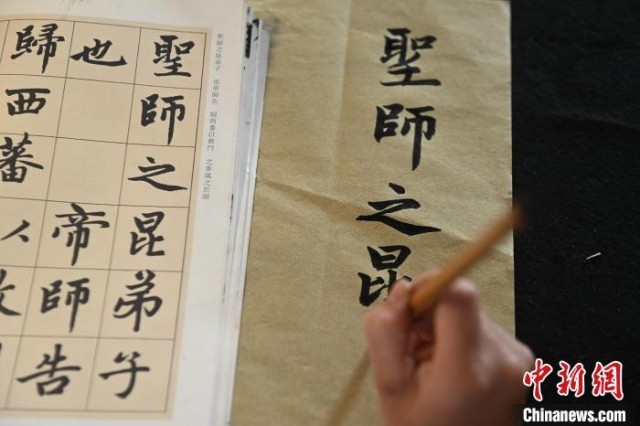 聖師之昆弟子
也帝師告
歸西蕃
聖師之昆
中新網
Chinanews.com